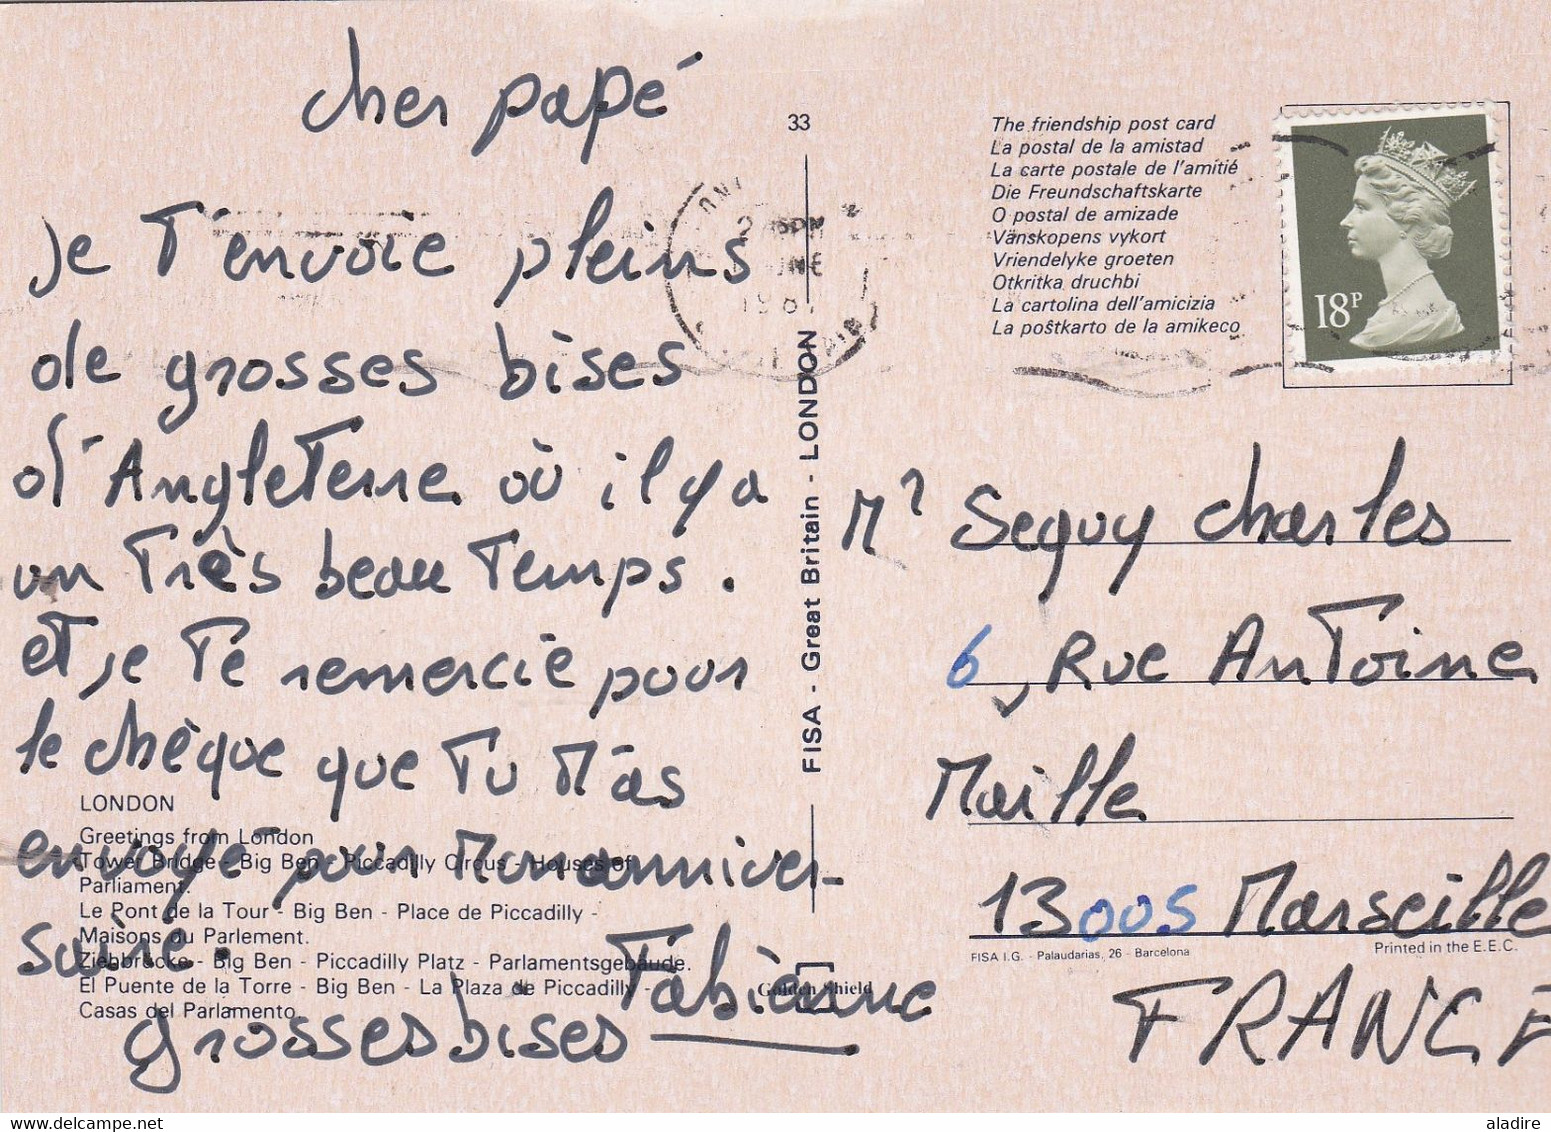 cher papé
je t'envoie pleins
de grosses bises
d'Angleterre où il y a
un très beau temps.
et je te remercie pour
le chèque que tu m'as
envoyé pour mon anniver-
saire.
grosses bises Fabienne
LONDON
Greetings from London
Tower Bridge - Big Ben - Piccadilly Circus - Houses of
Parliament.
Le Pont de la Tour - Big Ben - Place de Piccadilly -
Maisons du Parlement.
Ziehbrücke - Big Ben - Piccadilly Platz - Parlamentsgebäude.
El Puente de la Torre - Big Ben - La Plaza de Piccadilly -
Casas del Parlamento.
33
FISA - Great Britain - LONDON
Golden Shield
The friendship post card
La postal de la amistad
La carte postale de l'amitié
Die Freundschaftskarte
O postal de amizade
Vänskopens vykort
Vriendelyke groeten
Otkritka druchbi
La cartolina dell'amicizia
La poŝtkarto de la amikeco
18P
Mr Seguy Charles
6, Rue Antoine
Maille
13005 Marseille
FISA I.G. - Palaudarias, 26 - Barcelona
Printed in the E.E.C.
FRANCE
aladire